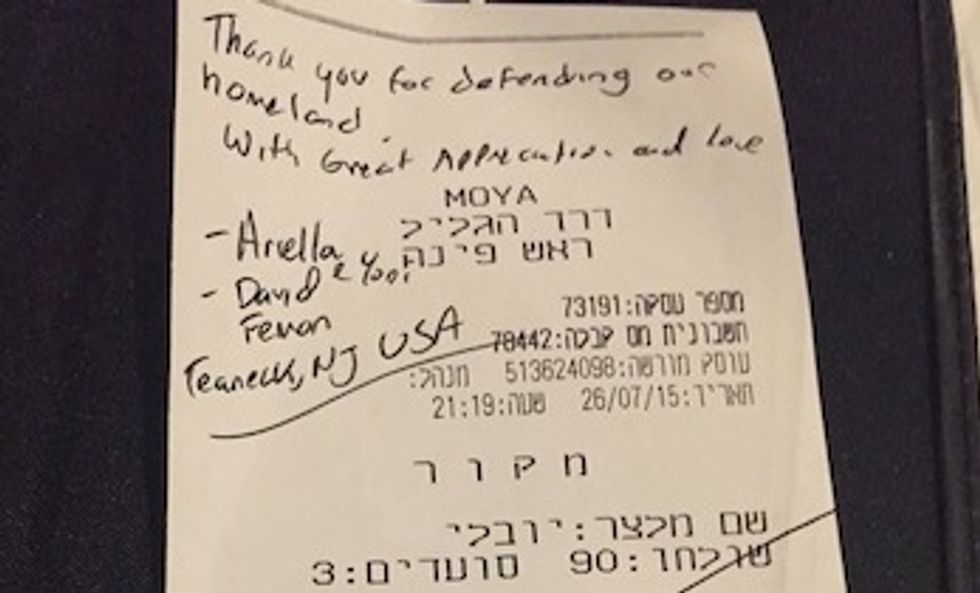 Thank you for defending our
homeland.
With Great Appreciation and love
MOYA
דרך הגליל
- Ariella
ראש פינה
- David &
מספר עסקה:73191
חשבונית מס קבלה:78442
Teaneck, NJ USA
עוסק מורשה:513624098 מנהל:
תאריך:26/07/15 שעה:21:19
מ ק ו ר
שם מלצר:יובלי
שולחן:90 סועדים:3